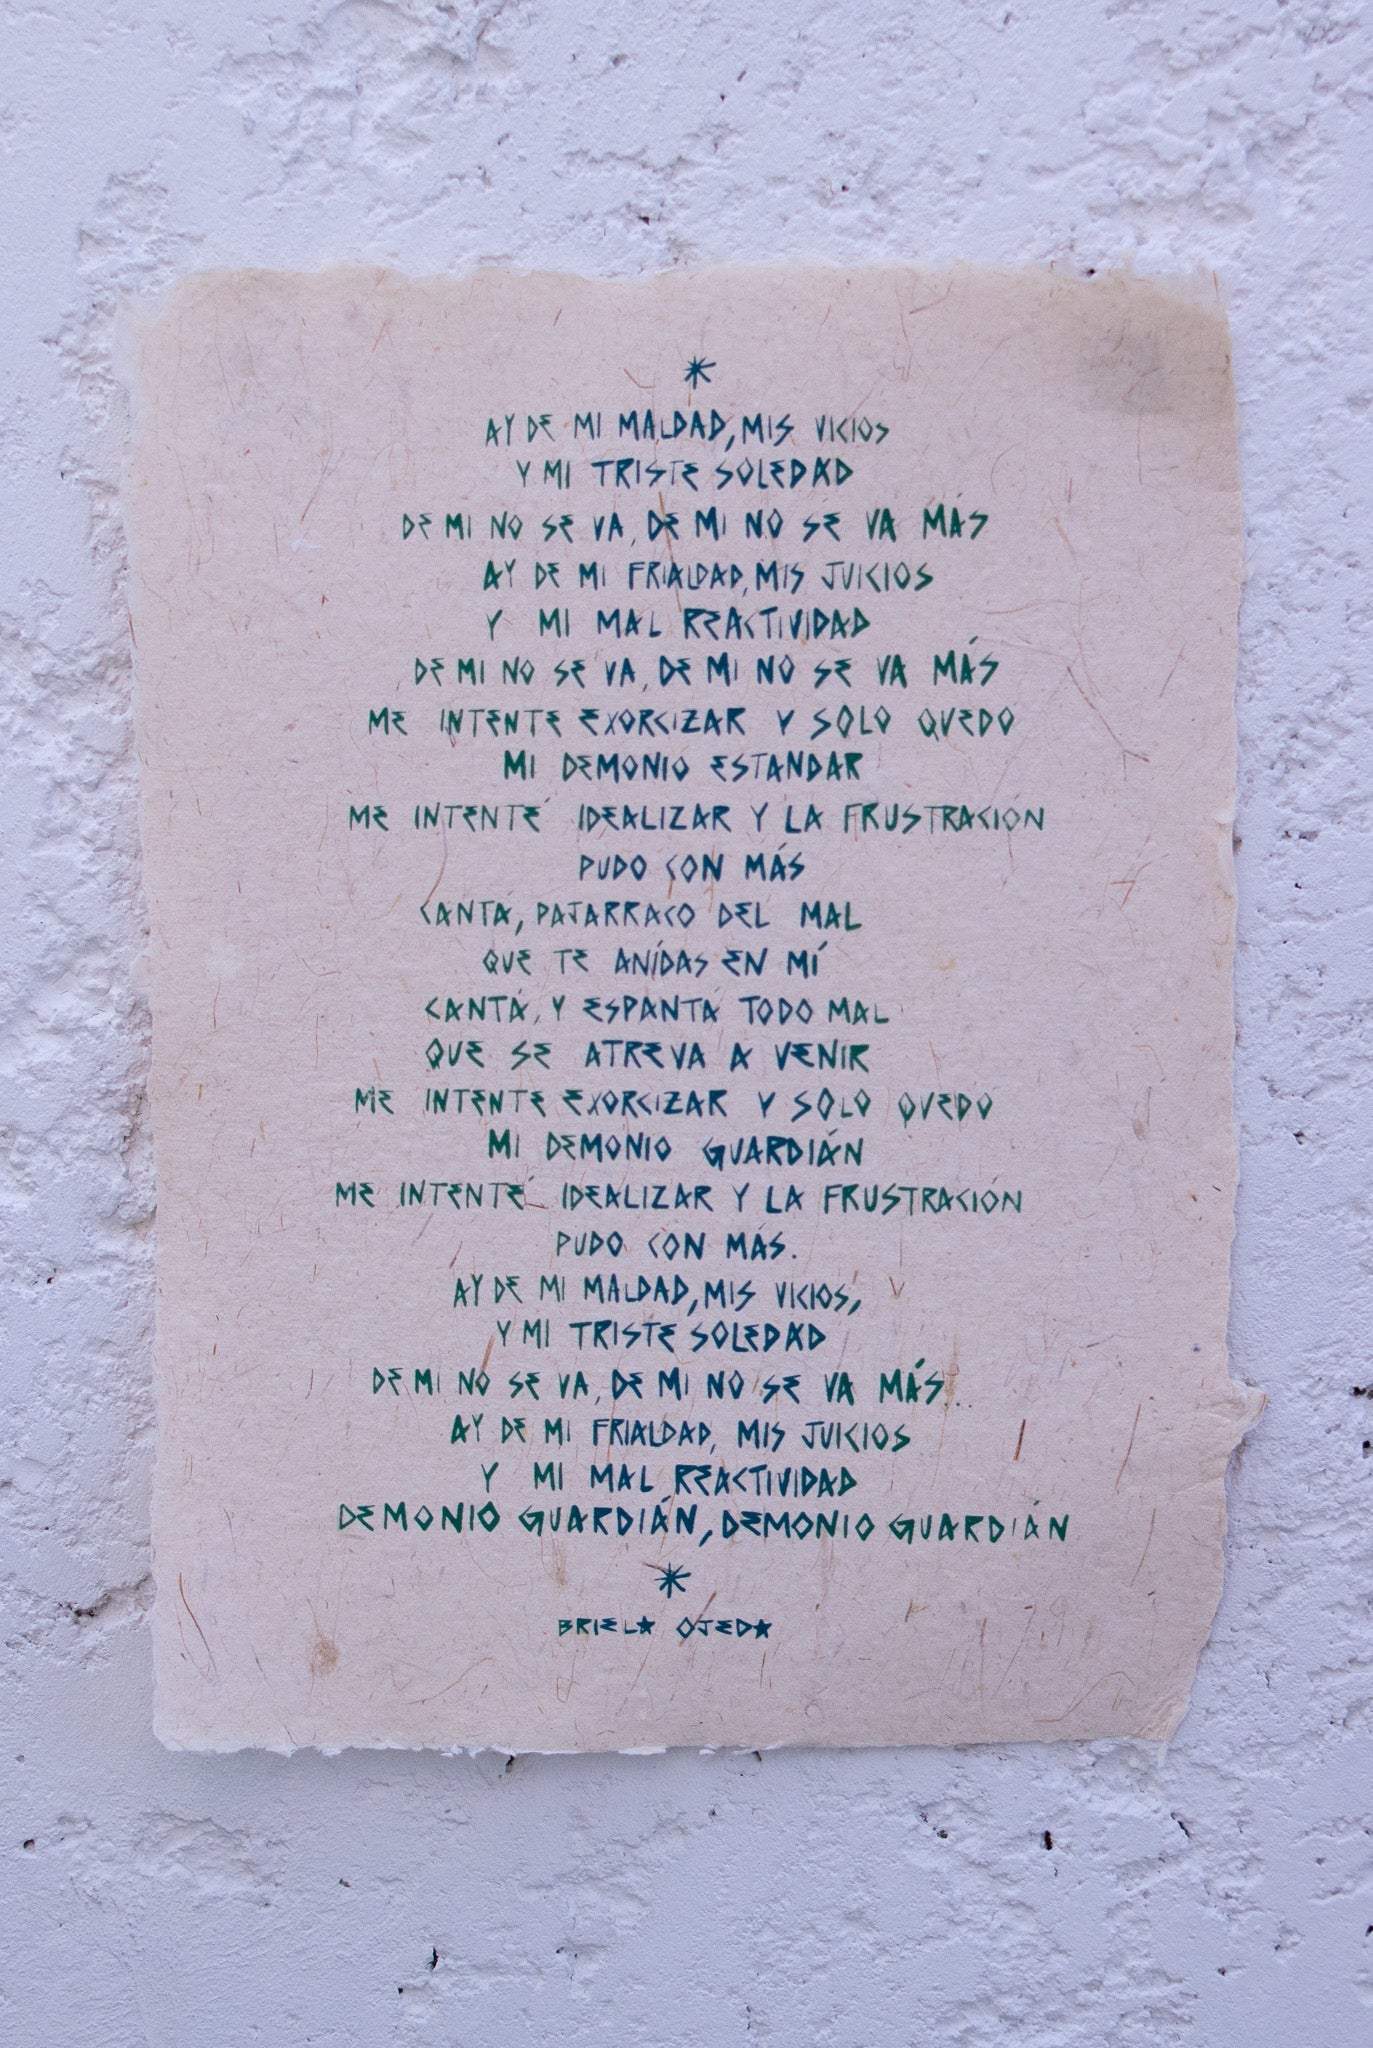 *
AY DE MI MALDAD, MIS VICIOS
Y MI TRISTE SOLEDAD
DE MI NO SE VA, DE MI NO SE VA MÁS
AY DE MI FRIALDAD, MIS JUICIOS
Y MI MAL REACTIVIDAD
DE MI NO SE VA, DE MI NO SE VA MÁS
ME INTENTE EXORCIZAR Y SOLO QUEDO
MI DEMONIO ESTANDAR
ME INTENTÉ IDEALIZAR Y LA FRUSTRACIÓN
PUDO CON MÁS
CANTÁ, PAJARRACO DEL MAL
QUE TE ANÍDAS EN MÍ
CANTÁ, Y ESPANTÁ TODO MAL
QUE SE ATREVA A VENIR
ME INTENTE EXORCIZAR Y SOLO QUEDÓ
MI DEMONIO GUARDIÁN
ME INTENTÉ IDEALIZAR Y LA FRUSTRACIÓN
PUDO CON MÁS.
AY DE MI MALDAD, MIS VICIOS,
Y MI TRISTE SOLEDAD
DE MI NO SE VA, DE MI NO SE VA MÁS...
AY DE MI FRIALDAD, MIS JUICIOS
Y MI MAL REACTIVIDAD
DEMONIO GUARDIÁN, DEMONIO GUARDIÁN
*
BRIELA OJEDA